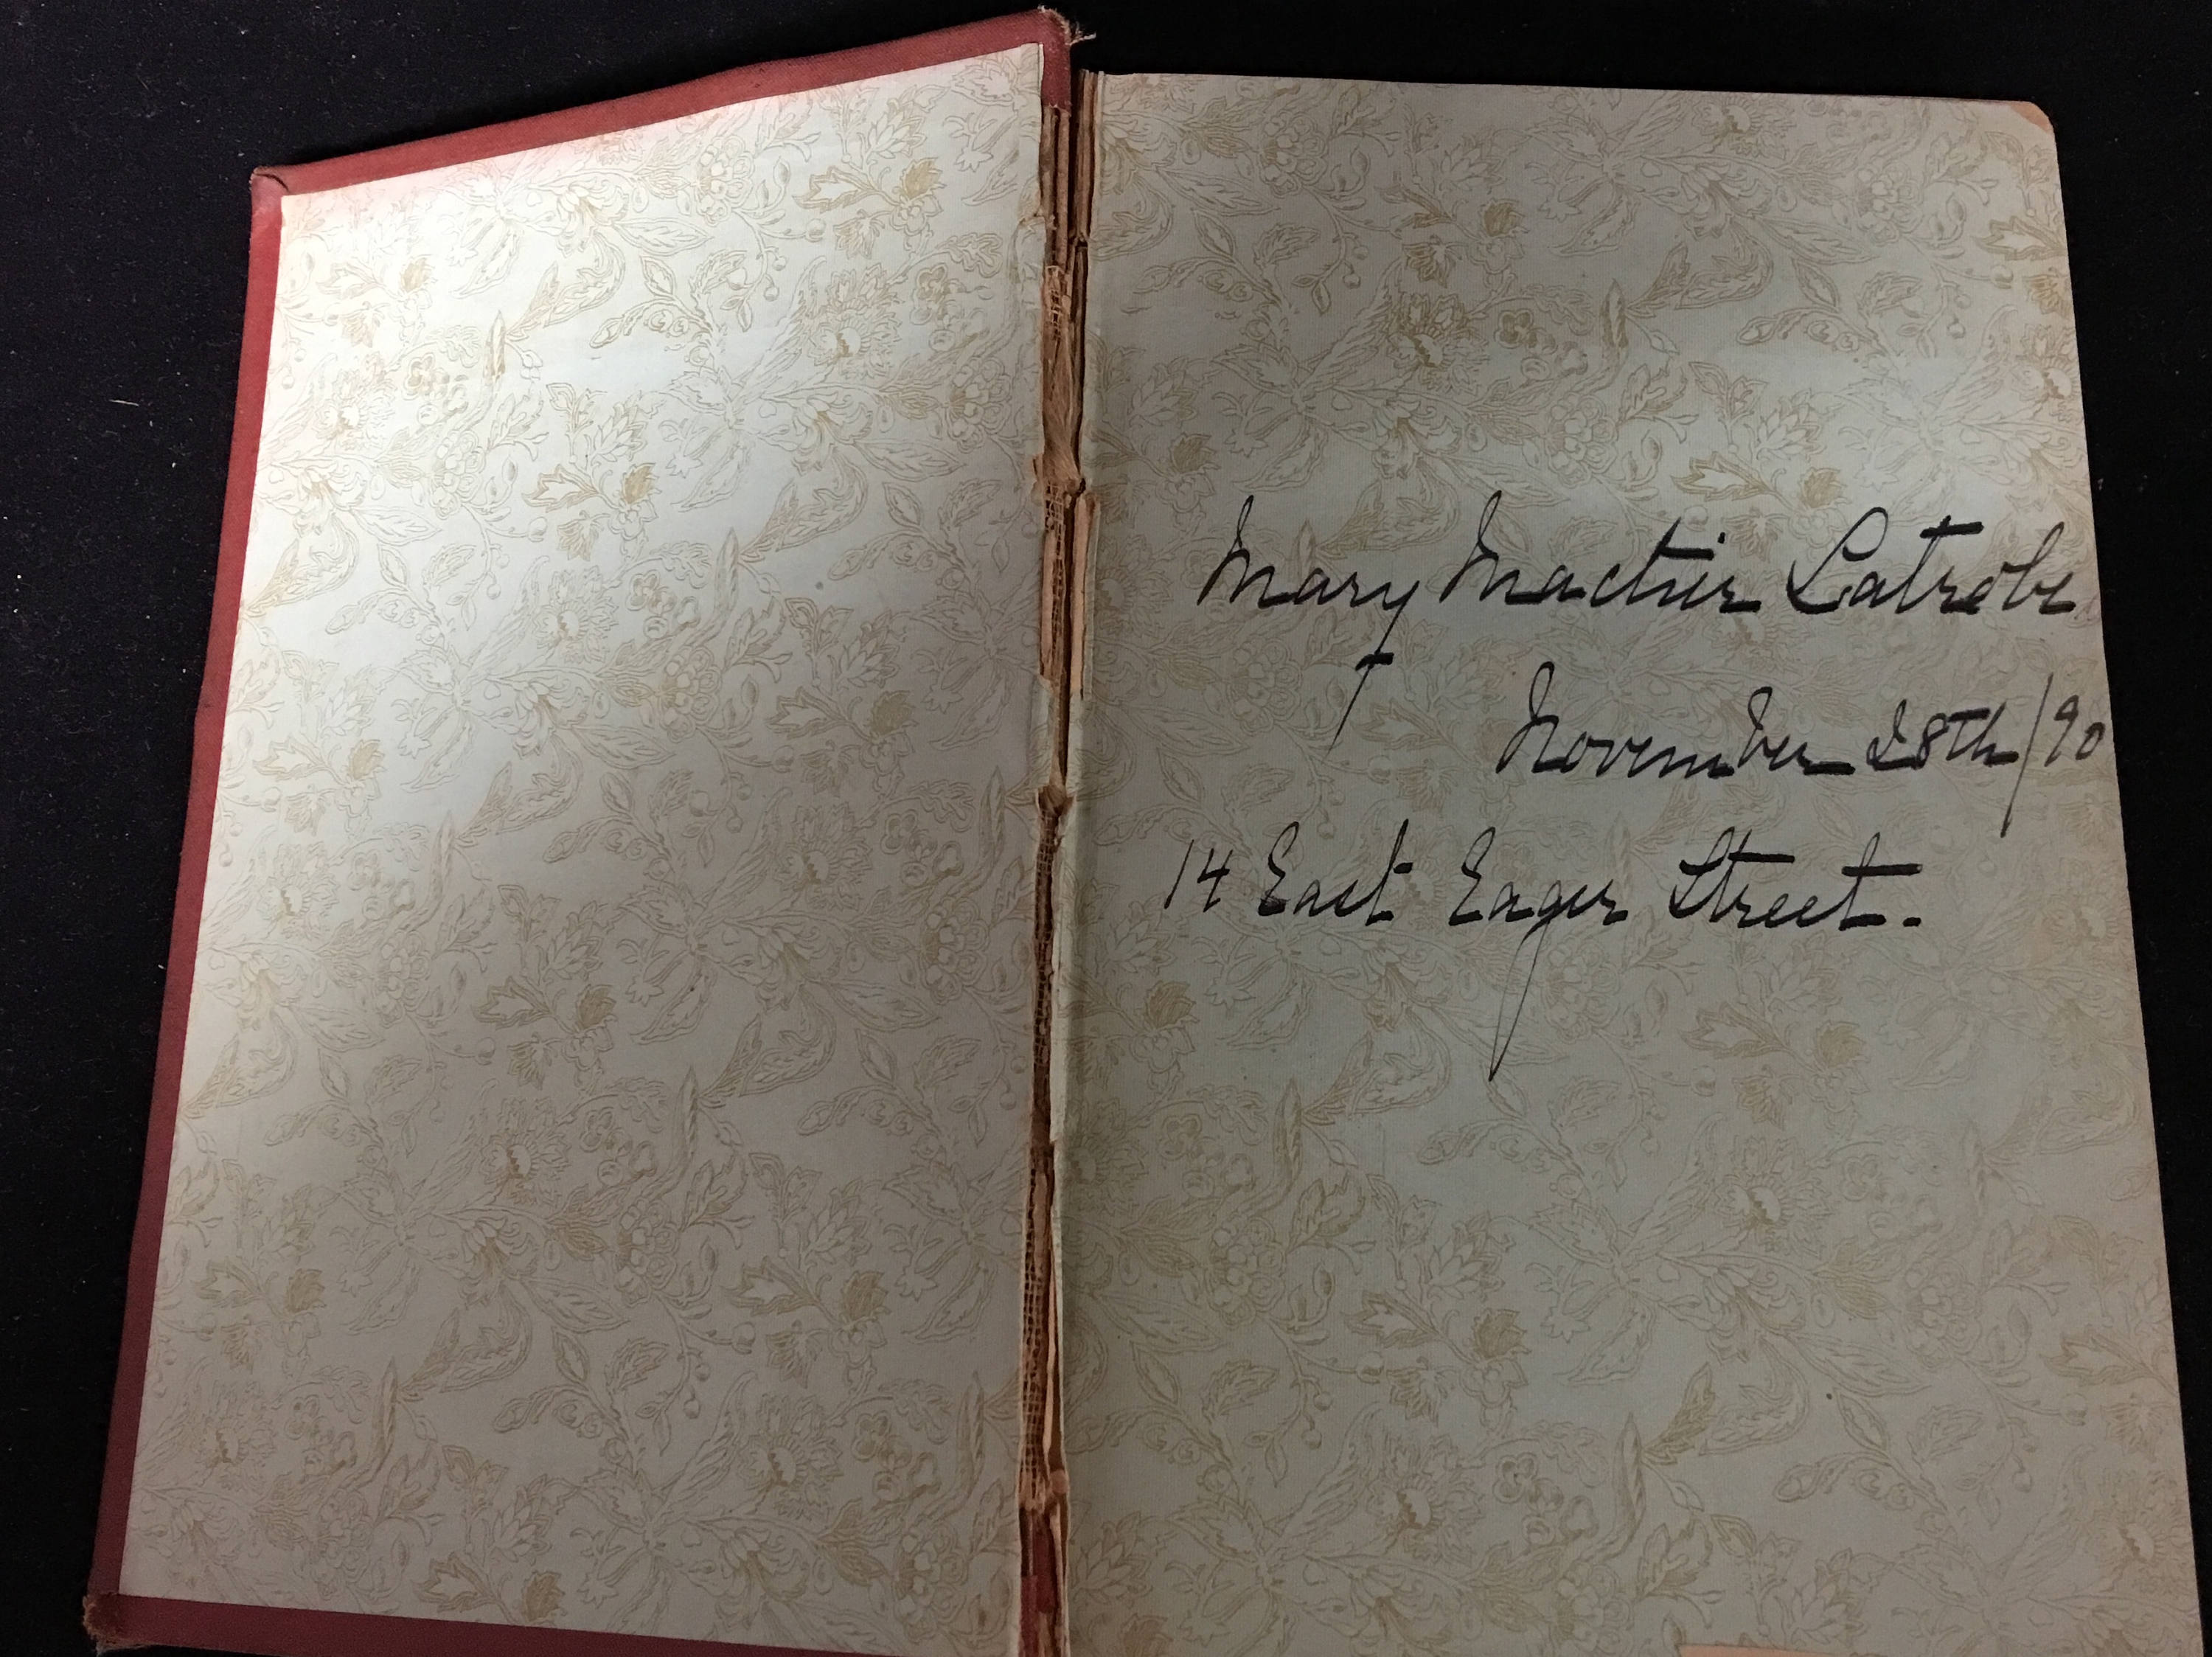 Mary Mactier Latrobe
November 28th/90
14 East Eager Street.